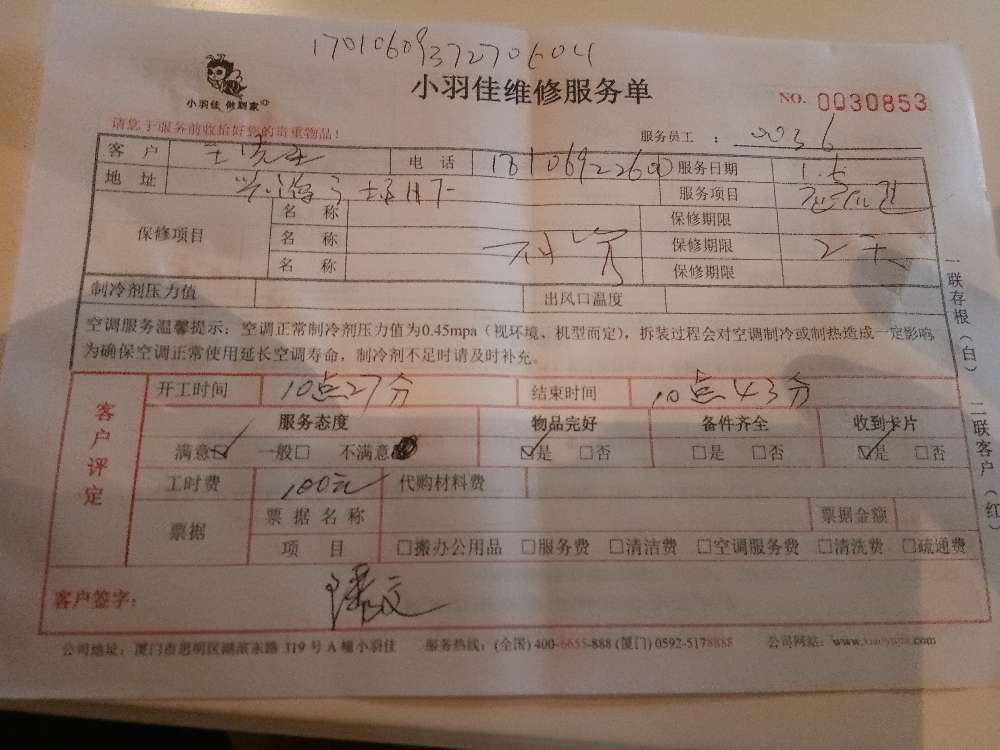 1701060937270604
小羽佳 做到家
小羽佳维修服务单
NO. 0030853
请您于服务前收拾好您的贵重物品!
服务员工 : 0036
客 户 电 话 服务日期 1.6
地 址 服务项目
保修项目 名 称 保修期限
名 称 保修期限 2天
名 称 保修期限
制冷剂压力值 出风口温度
空调服务温馨提示: 空调正常制冷剂压力值为0.45mpa(视环境、机型而定), 拆装过程会对空调制冷或制热造成一定影响,
为确保空调正常使用延长空调寿命, 制冷剂不足时请及时补充。
客户评定
开工时间 10点27分 结束时间 10点43分
服务态度 物品完好 备件齐全 收到卡片
满意☑ 一般□ 不满意 ☑是 □否 □是 □否 ☑是 □否
工时费 100元 代购材料费
票据 票 据 名 称 票据金额
项 目 □搬办公用品 □服务费 □清洁费 □空调服务费 □清洗费 □疏通费
客户签字:
公司地址: 厦门市思明区湖滨东路 319 号 A 幢小羽佳 服务热线: (全国) 400-6655-888 (厦门) 0592-5178888 公司网站: www.xiaoyujia.com
一联存根(白) 二联客户(红)